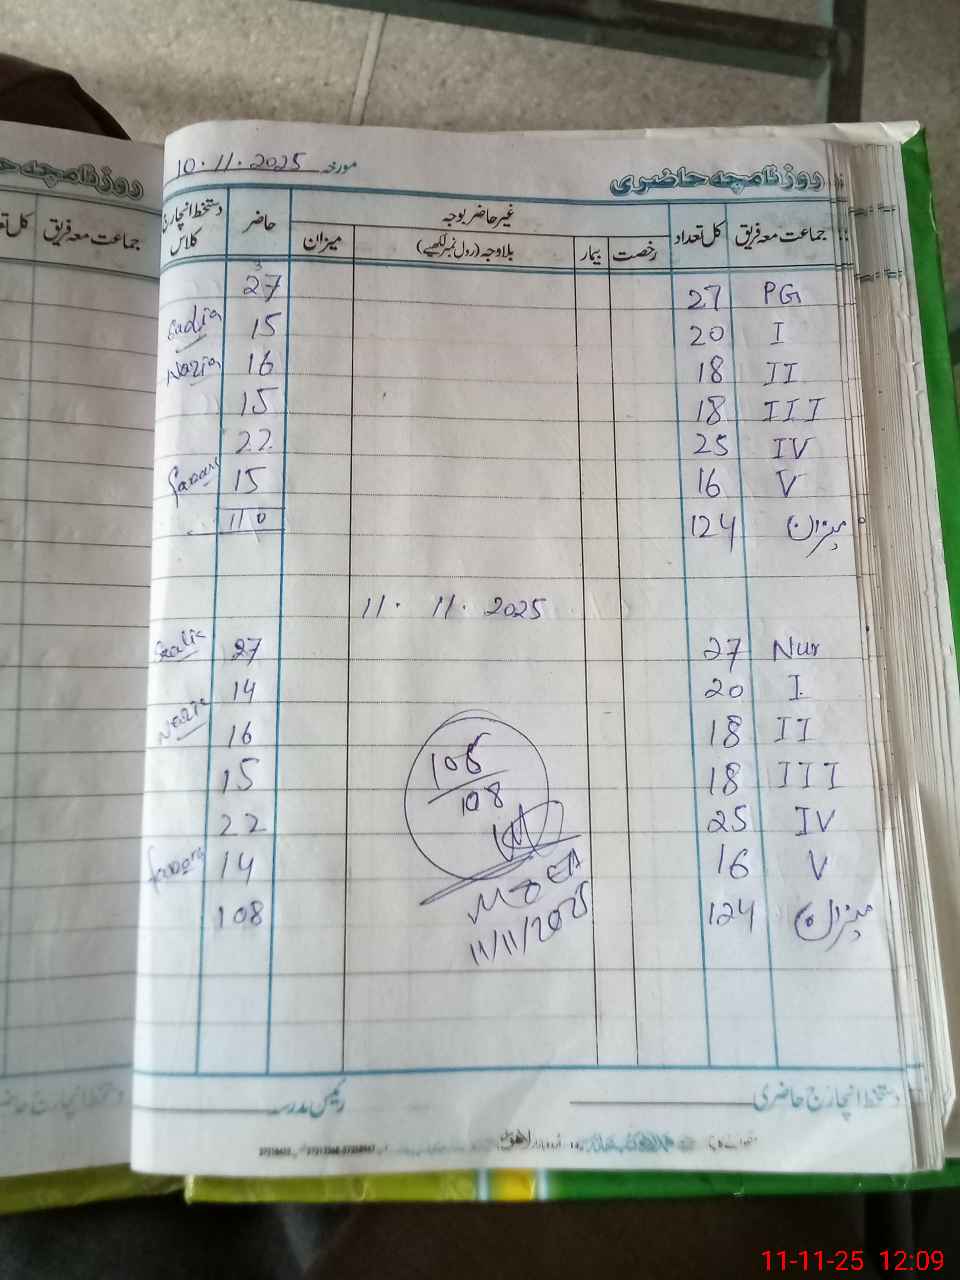 روزنامچہ حاضری مورخہ 10.11.2025
جماعت معہ فریق کل تعداد غیر حاضر بوجہ حاضر دستخط انچارج کلاس
رخصت بیمار بلاوجہ (رول نمبر لکھیے) میزان
PG 27 27
I 20 15 Sadia
II 18 16 Nazia
III 18 15
IV 25 22
V 16 15
میزان 124 110
11. 11. 2025
Nur 27 27
I 20 14
II 18 16
III 18 15
IV 25 22
V 16 14
میزان 124 108
108
11/11/2025
دستخط انچارج حاضری رئیس مدرسہ
روزنامچہ
جماعت معہ فریق
11-11-25 12:09